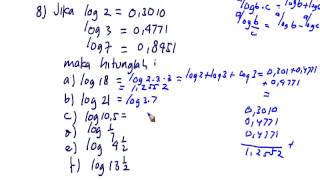 8) Jika log 2 = 0,3010
log 3 = 0,4771
log 7 = 0,8451
maka hitunglah :
a) log 18 = log 2·3·3 = log 2 + log 3 + log 3 = 0,3010 + 0,4771 + 0,4771
= 1,2552
b) log 21 = log 3.7
c) log 10,5 =
d) log 1/7
e) log 4 1/2
f) log 13 1/2
0,3010
0,4771
0,4771
+
1,2552